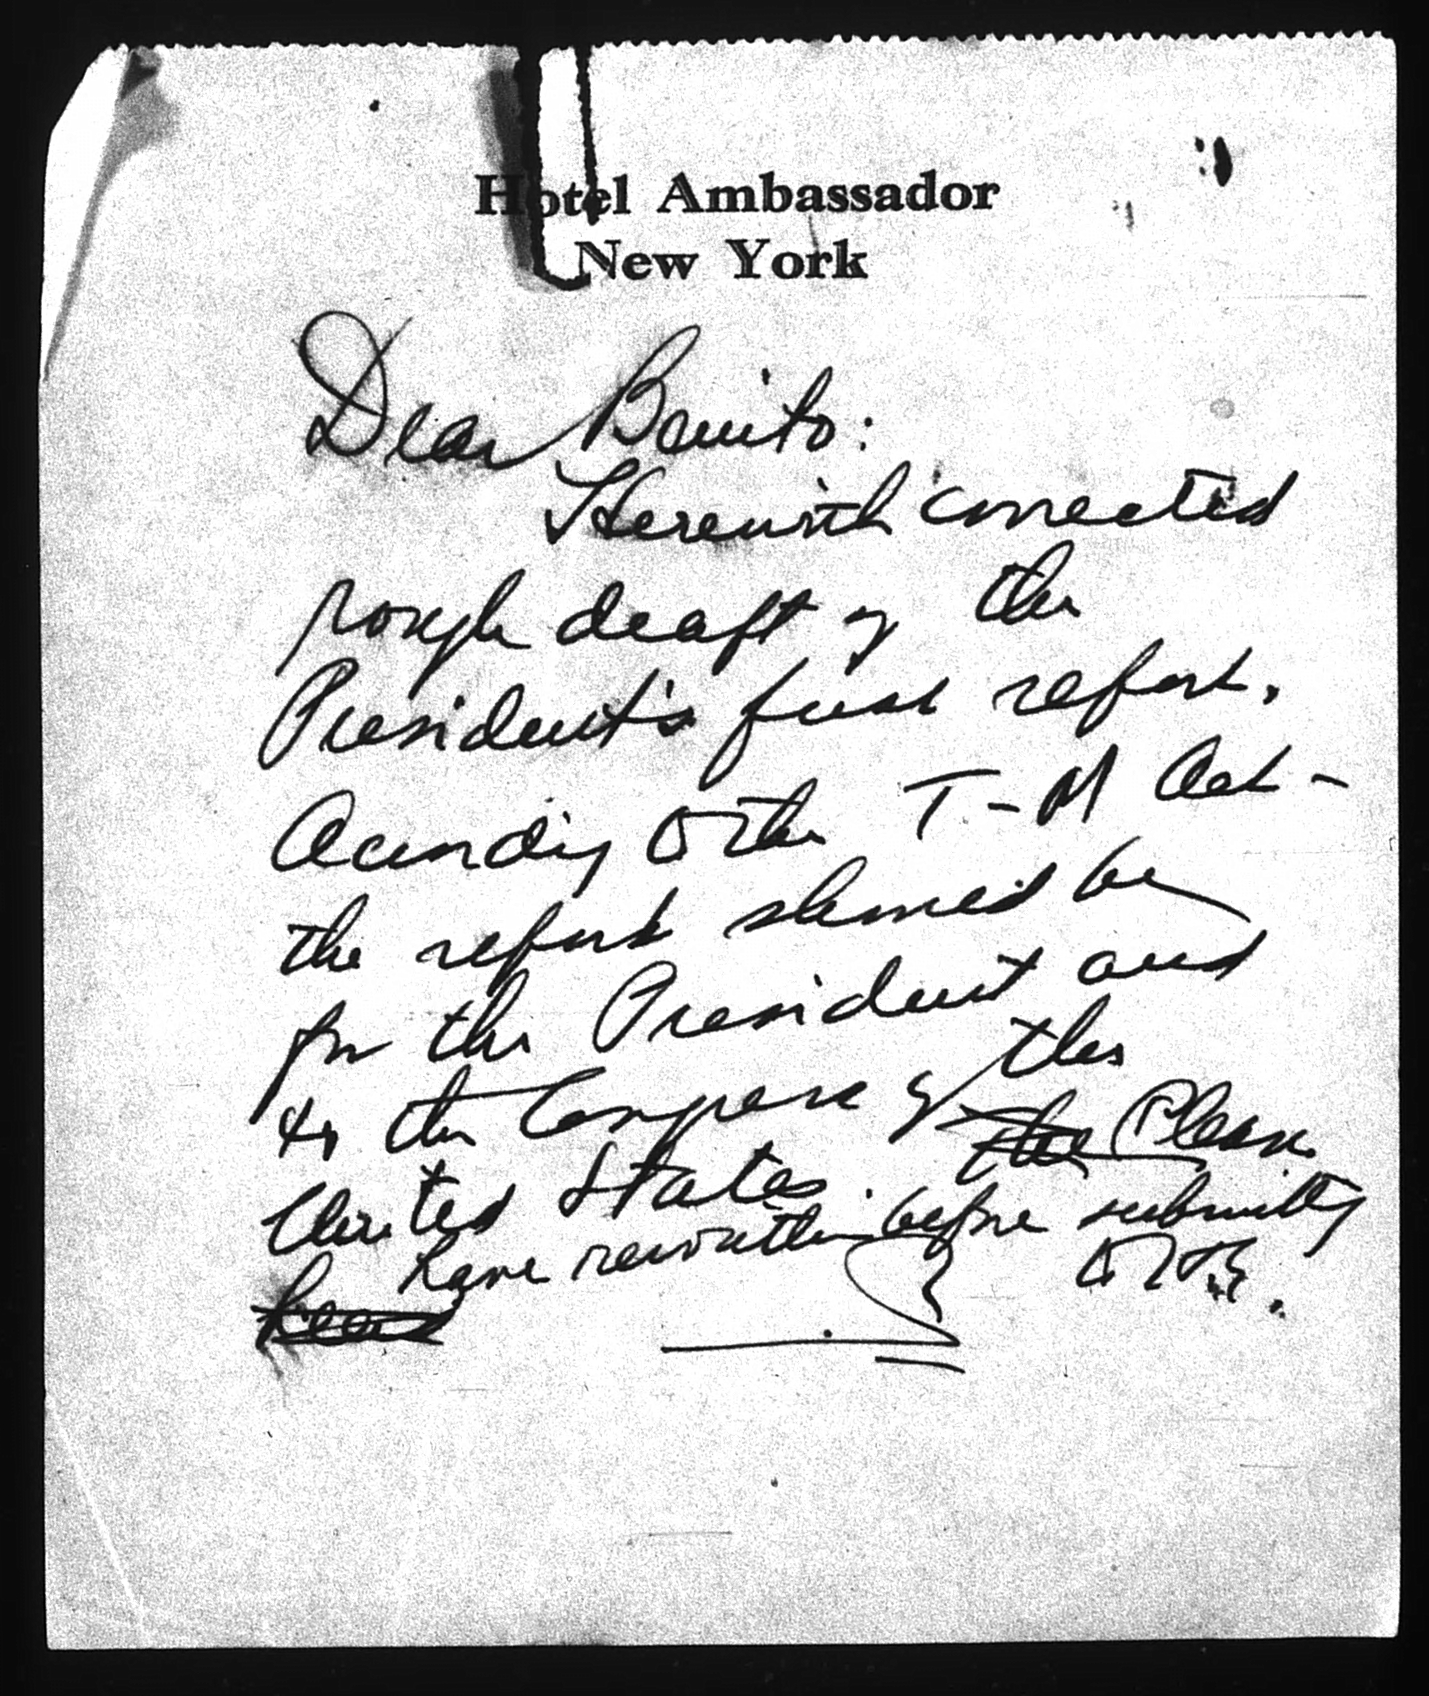 Hotel Ambassador
New York
Dear Benito:
Herewith corrected
rough draft of the
President's first report.
According to the T-M Act -
the report should be
for the President and
to the Congress of the
United States. the Please
have rewritten before submitting